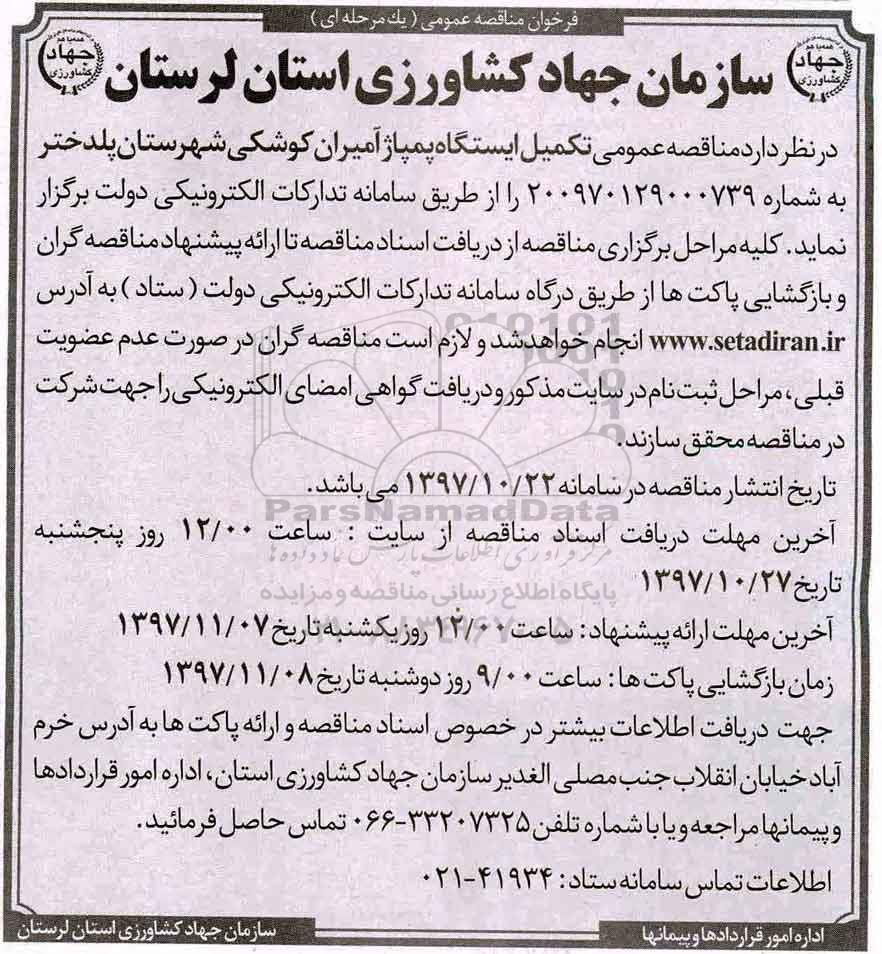 فرخوان مناقصه عمومی (یك مرحله ای)
همه با هم
جهاد
کشاورزی
سازمان جهاد کشاورزی استان لرستان
همه با هم
جهاد
کشاورزی
در نظر دارد مناقصه عمومی تکمیل ایستگاه پمپاژ آمیران کوشکی شهرستان پلدختر
به شماره ۲۰۰۹۷۰۱۲۹۰۰۰۷۳۹ را از طریق سامانه تدارکات الکترونیکی دولت برگزار
نماید. کلیه مراحل برگزاری مناقصه از دریافت اسناد مناقصه تا ارائه پیشنهاد مناقصه گران
و بازگشایی پاکت ها از طریق درگاه سامانه تدارکات الکترونیکی دولت (ستاد) به آدرس
www.setadiran.ir انجام خواهد شد و لازم است مناقصه گران در صورت عدم عضویت
قبلی، مراحل ثبت نام در سایت مذکور و دریافت گواهی امضای الکترونیکی را جهت شرکت
در مناقصه محقق سازند.
تاریخ انتشار مناقصه در سامانه ۱۳۹۷/۱۰/۲۲ می باشد.
ParsNamadData
آخرین مهلت دریافت اسناد مناقصه از سایت : ساعت ۱۲/۰۰ روز پنجشنبه
مرکز فرآوری اطلاعات پارس نماد داده ها
تاریخ ۱۳۹۷/۱۰/۲۷
پایگاه اطلاع رسانی مناقصه و مزایده
آخرین مهلت ارائه پیشنهاد: ساعت ۱۲/۰۰ روز یکشنبه تاریخ ۱۳۹۷/۱۱/۰۷
زمان بازگشایی پاکت ها: ساعت ۹/۰۰ روز دوشنبه تاریخ ۱۳۹۷/۱۱/۰۸
جهت دریافت اطلاعات بیشتر در خصوص اسناد مناقصه و ارائه پاکت ها به آدرس خرم
آباد خیابان انقلاب جنب مصلی الغدیر سازمان جهاد کشاورزی استان، اداره امور قراردادها
و پیمانها مراجعه و یا با شماره تلفن ۳۳۲۰۷۳۲۵-۰۶۶ تماس حاصل فرمائید.
اطلاعات تماس سامانه ستاد: ۴۱۹۳۴-۰۲۱
اداره امور قراردادها و پیمانها
سازمان جهاد کشاورزی استان لرستان